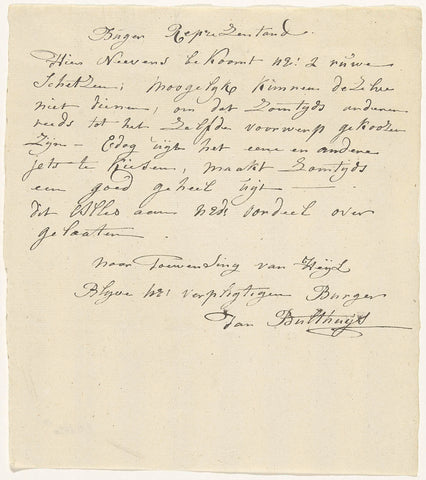 Burger Reprezentand.
Hier Neevens bekoomt UE: 2 ruwe
Schetzen; moogelyk kunnen dezelve
niet dienen, om dat Zomtyds anderen
reeds tot het Zelfde voorwerp gekoozen
Zyn - Edog uijt het eene en andere
jets te kiesen, maakt Zomtyds
een goed geheel uijt
dit Alles aan UEds oordeel over
gelaaten
naar Toewensing van Heijl
Blyve UE: verpligtigen Burger
Jan Bulthuijs